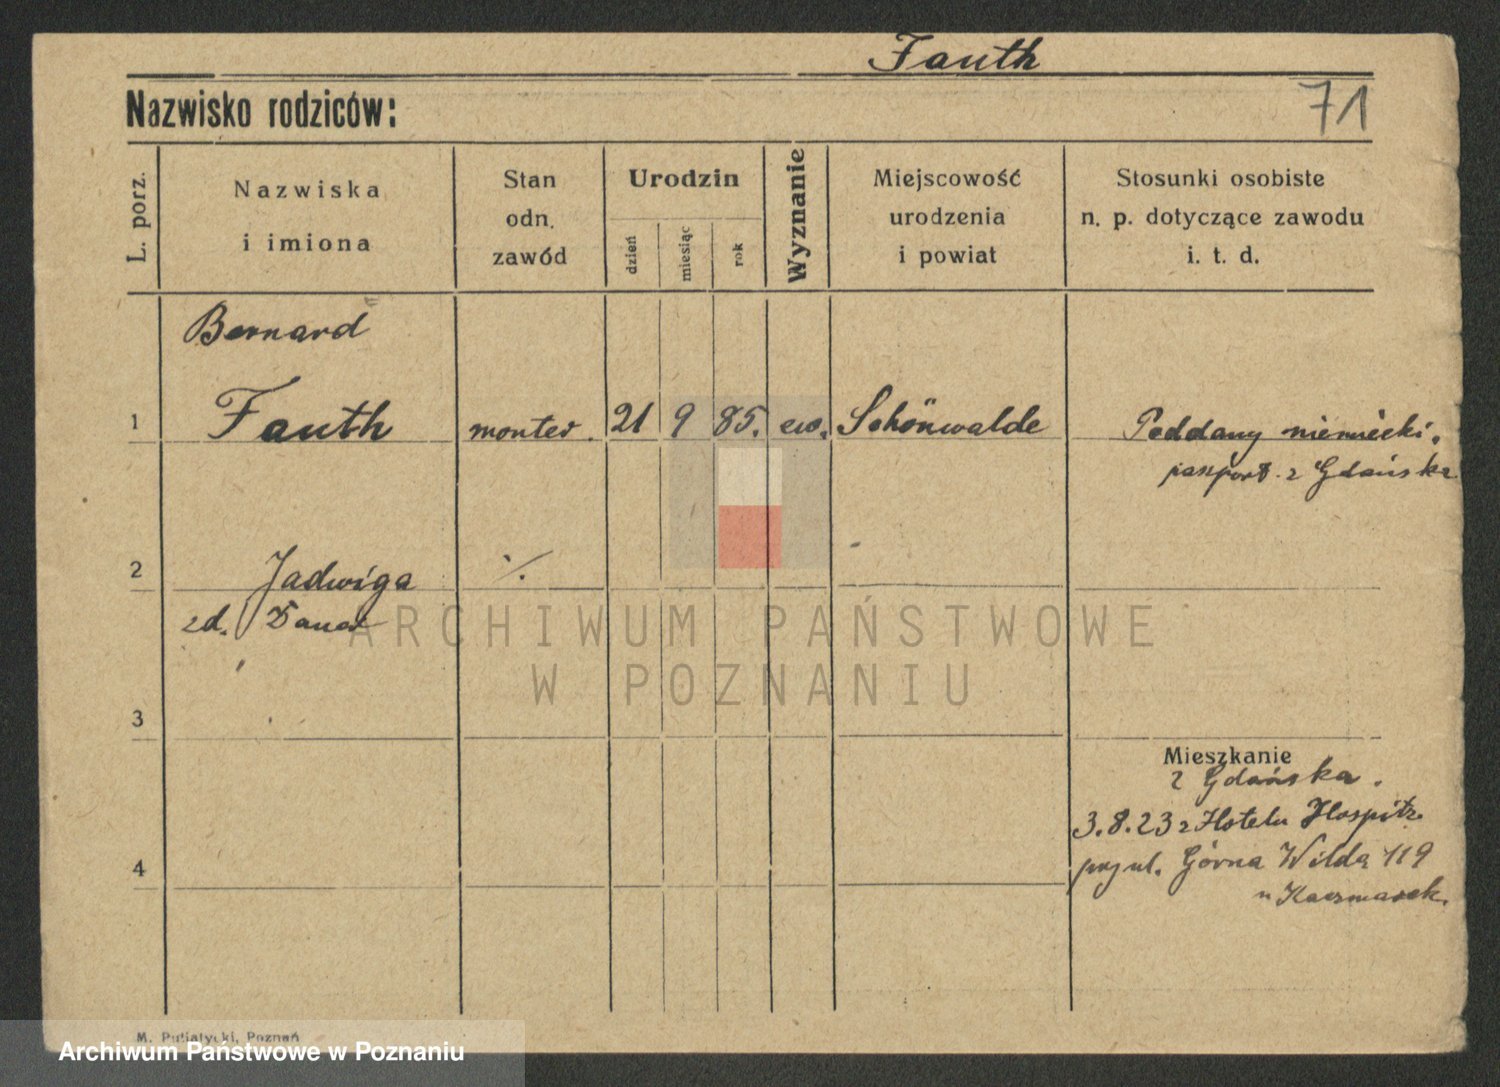 Fauth
71
Nazwisko rodziców:
L. porz.
Nazwiska
i imiona
Stan
odn.
zawód
Urodzin
dzień
miesiąc
rok
Wyznanie
Miejscowość
urodzenia
i powiat
Stosunki osobiste
n. p. dotyczące zawodu
i. t. d.
Bernard
1 Fauth monter. 21 9 85. ew. Schönwalde Poddany niemiecki.
paszport z Gdańska
2 Jadwiga ./.
zd.
3
Mieszkanie
z Gdańska.
3.8.23 z Hotelu Hospitz
przy ul. Górna Wilda 119
4
u Kaczmarek.
M. Putiatycki, Poznań
ARCHIWUM PAŃSTWOWE
W POZNANIU
Archiwum Państwowe w Poznaniu